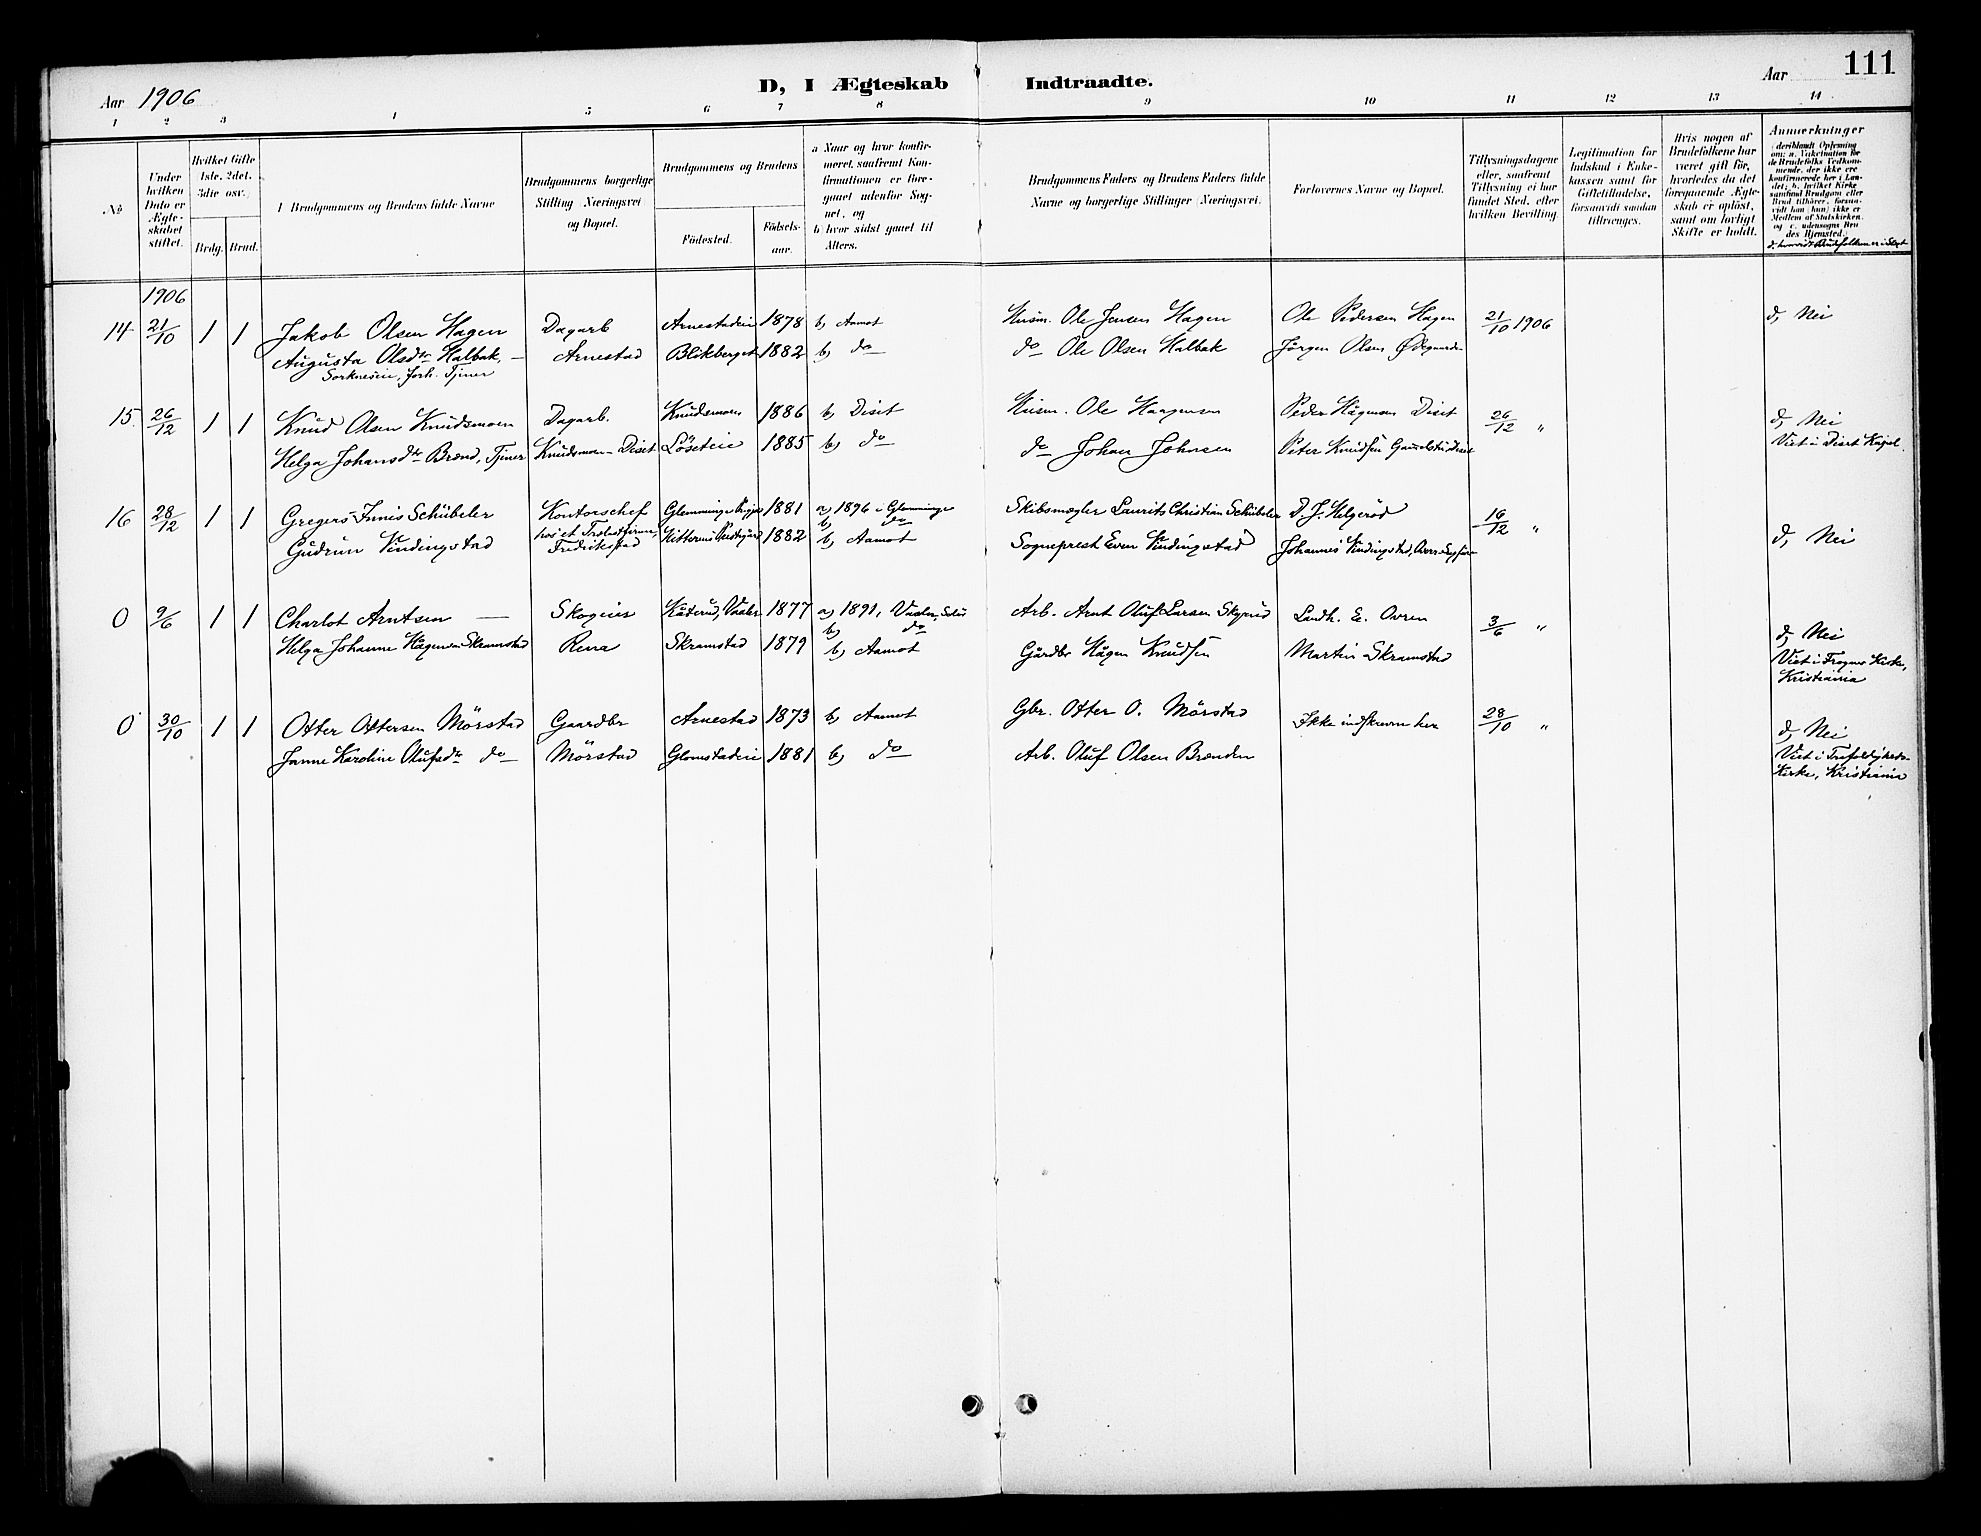 Aar 1906
D, I Ægteskab Indtraadte.
Aar
111
1 2 3 4 5 6 7 8 9 10 11 12 13 14
No
Under hvilken Dato er Ægteskabet stiftet.
Hvilket Gifte 1ste, 2det, 3die osv.
Brdg. Brud.
Brudgommens og Brudens fulde Navne
Brudgommens borgerlige Stilling (Næringsvei) og Bopæl.
Brudgommens og Brudens
Födested.
Födsels-aar.
a) Naar og hvor konfirmeret, saafremt Konfirmationen er foregaaet udenfor Sognet, og
b) hvor sidst gaaet til Alters.
Brudgommens Faders og Brudens Faders fulde Navne og borgerlige Stillinger (Næringsvei).
Forlovernes Navne og Bopæl.
Tillysningsdagene eller, saafremt Tillysning ei har fundet Sted, efter hvilken Bevilling.
Legitimation for Indskud i Enkekassen samt for Giftetilladelse, forsaavidt saadan tiltrænges.
Hvis nogen af Brudefolkene har været gift för, hvorledes da det foregaaende Ægteskab er oplöst, samt om lovligt Skifte er holdt.
Anmerkninger
1906
14 21/10 1 1 Jakob Olsen Hagen Dagarb Arnestadeie 1878 b) Aamot Husm. Ole Jensen Hagen Ole Pedersen Hagen 21/10 1906 d, Nei
Augusta Olsdtr Halbak, — Arnestad Blikberget 1882 b) do do Ole Olsen Halbak Jörgen Olsen Ødegaarden
Sorkneseie, forh. Tjener
15 26/12 1 1 Knud Olsen Knudsmoen Dagarb. Knudsmoen 1886 b) Diset Husm. Ole Haagensen Peder Hågensen Diset 26/12 " d, Nei
Helga Johansdtr Brænd, Tjener Knudsmoen - Diset Löseteie 1885 b) do do Johan Johnsen Peter Knudsen Diset Viet i Diset Kapel.
16 28/12 1 1 Gregers Innis Schübeler Kontorschef Glemminge 1881 a) 1896 i Glemminge Skibsmægler Laurits Christian Schübeler D. J. Helgeröd 16/12 " d, Nei
b) do
Gudrun Vindingstad Fredrikstad 1882 b) Aamot Sogneprest Even Vindingstad Johannes Vindingstad,
0 9/6 1 1 Charlot Arntsen — Skogeier Våler 1877 a) 1891, Vaaler, Solör Arb. Arnt Oluf Larsen Landh. E. Ovren 3/6 " d, Nei
b) do
Helga Johanne Hågensen Skramstad Rena Skramstad 1879 b) Aamot Gårdbr Hågen Knudsen Martin Skramstad Viet i Frogner Kirke, Kristiania
0 30/10 1 1 Otter Ottersen Mörstad Gaardbr Arnestad 1873 b) Aamot Gbr. Otter O. Mörstad Ikke indskreven her 28/10 " d, Nei
Janne Karoline Olufsdtr do Mörstad Glomstadeie 1881 b) do Arb. Oluf Olsen Brænden Viet i Trefoldigheds-Kirke, Kristiania